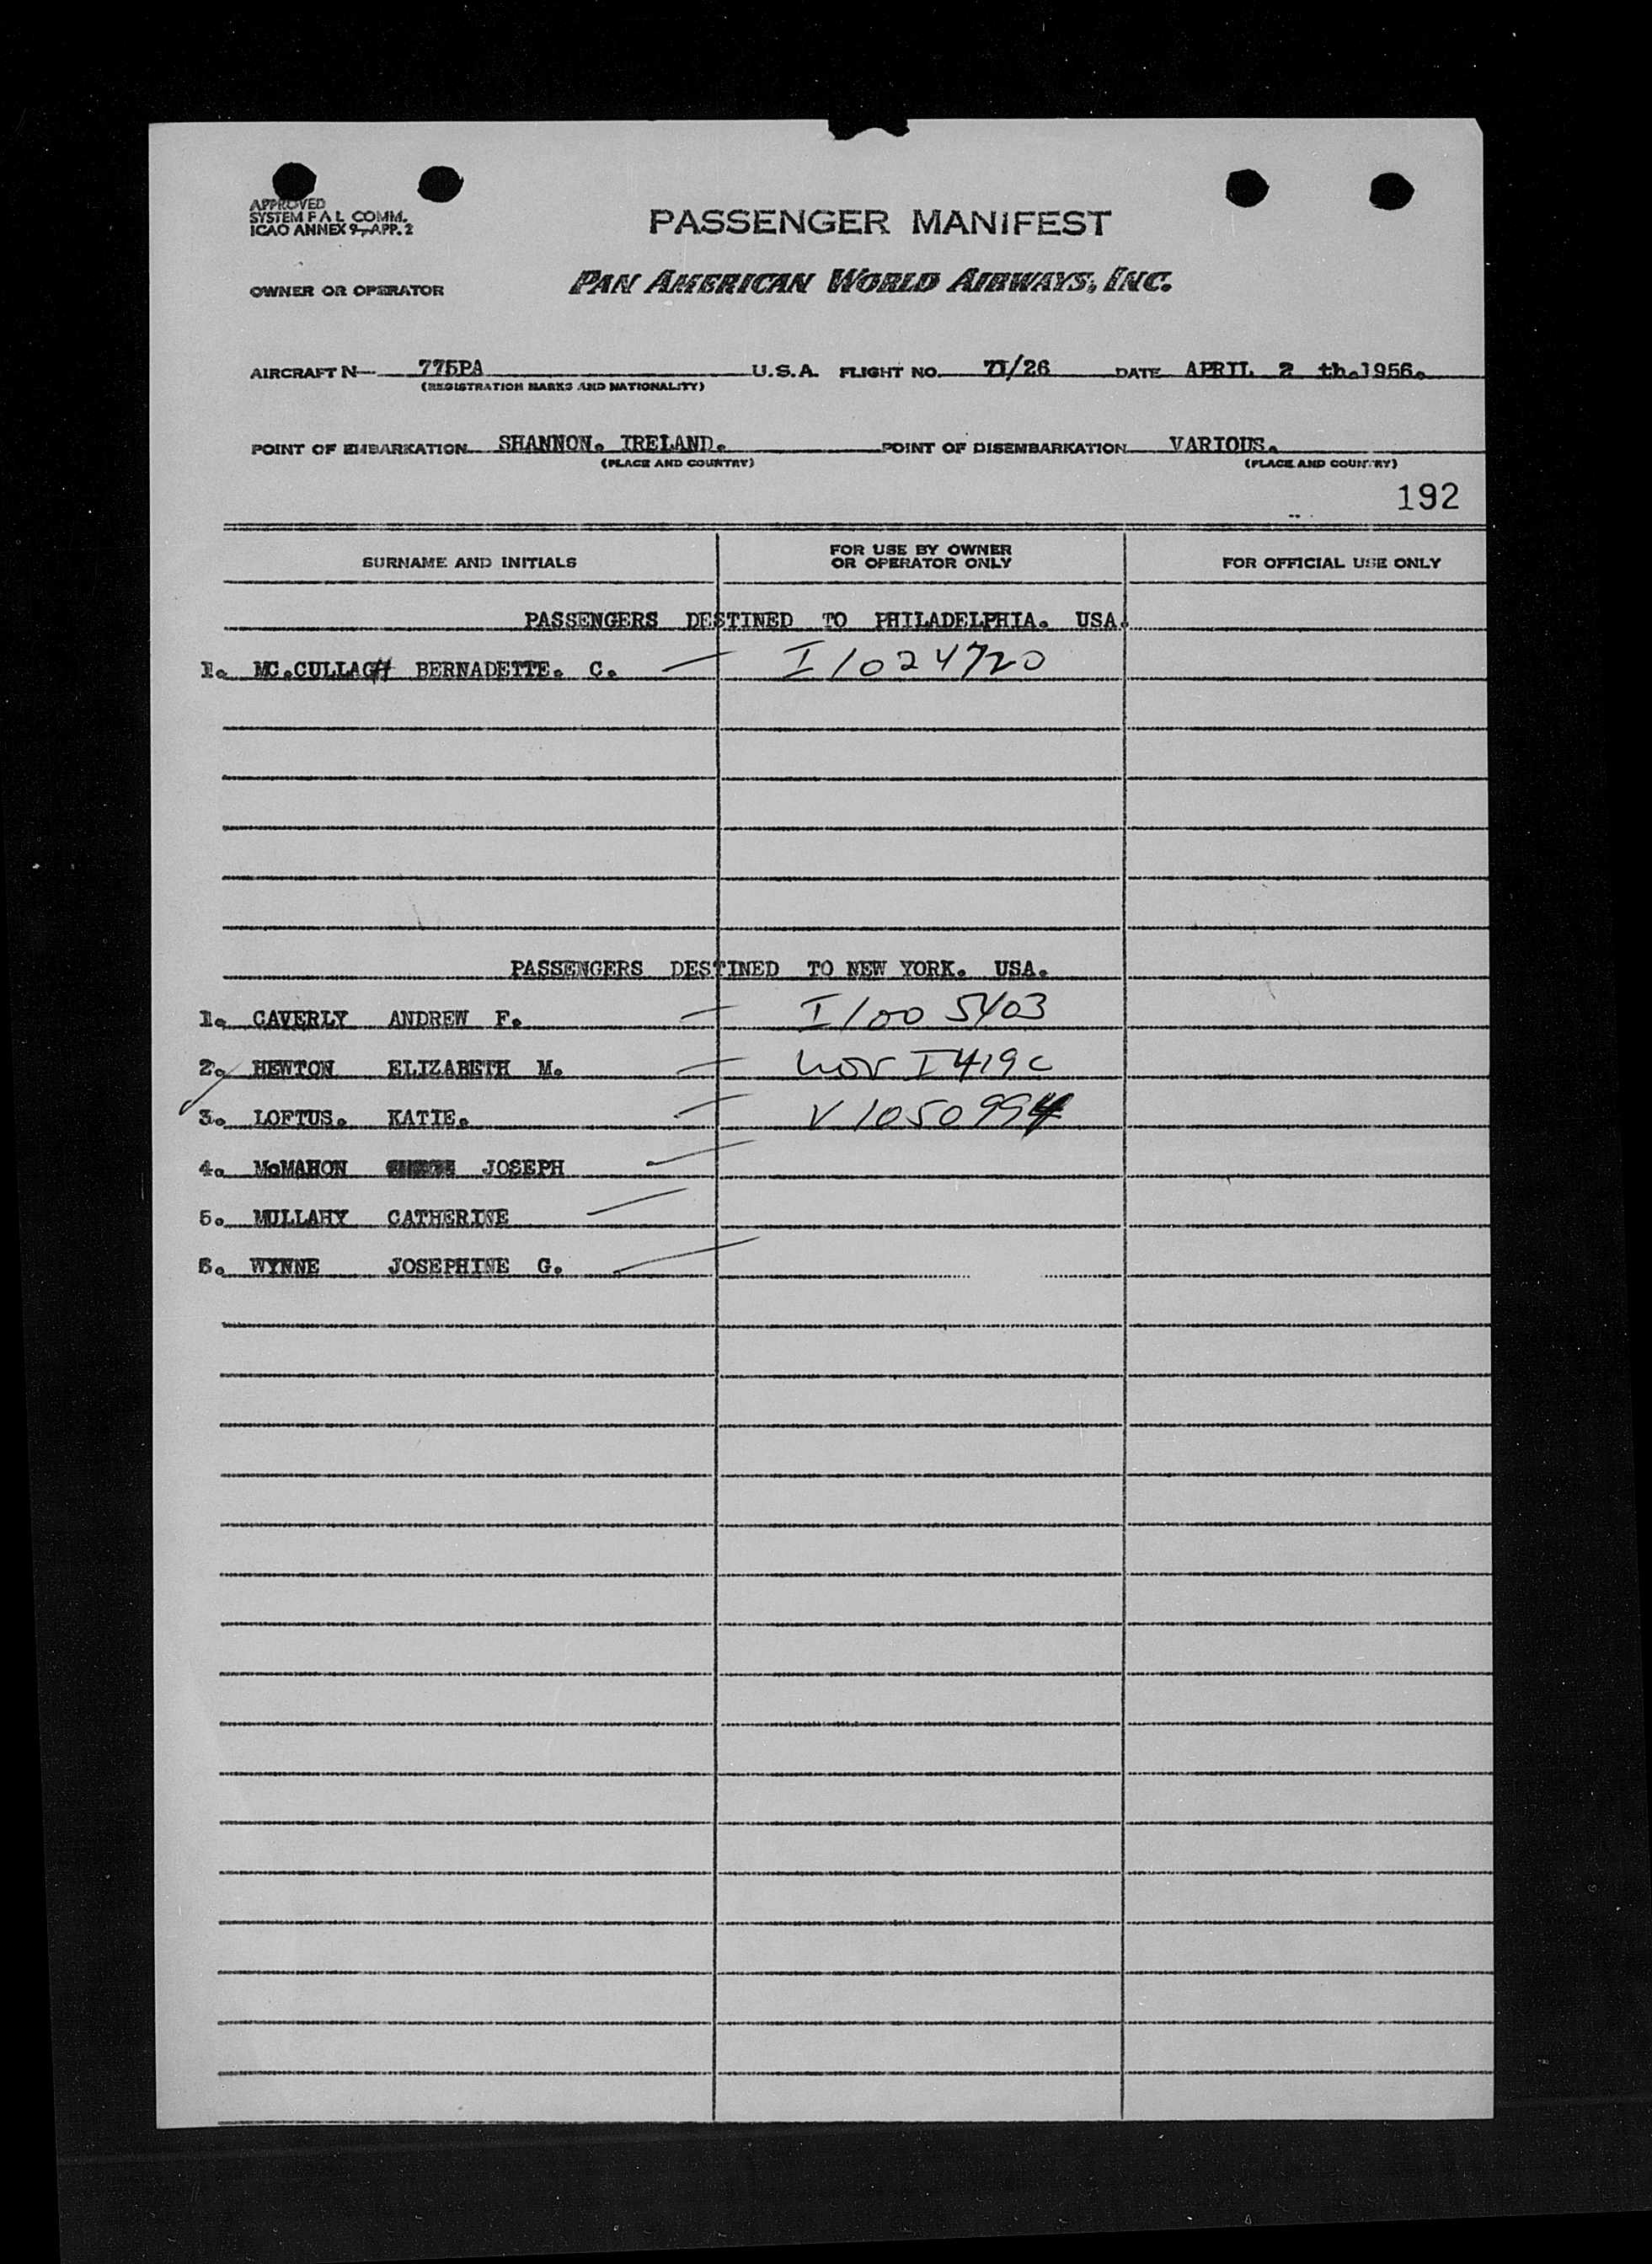 APPROVED
SYSTEM F A L COMM.
ICAO ANNEX 9-APP. 2
PASSENGER MANIFEST
OWNER OR OPERATOR PAN AMERICAN WORLD AIRWAYS, INC.
AIRCRAFT N— 775PA U.S.A. FLIGHT NO. 71/26 DATE APRIL 2 th.1956.
(REGISTRATION MARKS AND NATIONALITY)
POINT OF EMBARKATION SHANNON. IRELAND. POINT OF DISEMBARKATION VARIOUS.
(PLACE AND COUNTRY) (PLACE AND COUNTRY)
192
SURNAME AND INITIALS FOR USE BY OWNER OR OPERATOR ONLY FOR OFFICIAL USE ONLY
PASSENGERS DESTINED TO PHILADELPHIA. USA.
1. MC.CULLAGH BERNADETTE. C. — I 1024720
PASSENGERS DESTINED TO NEW YORK. USA.
1. CAVERLY ANDREW F. — I 1005403
2. HEWTON ELIZABETH M. — I 419
3. LOFTUS. KATIE. — V 1050994
4. McMAHON JOSEPH
5. MULLAHY CATHERINE
6. WYNNE JOSEPHINE G.